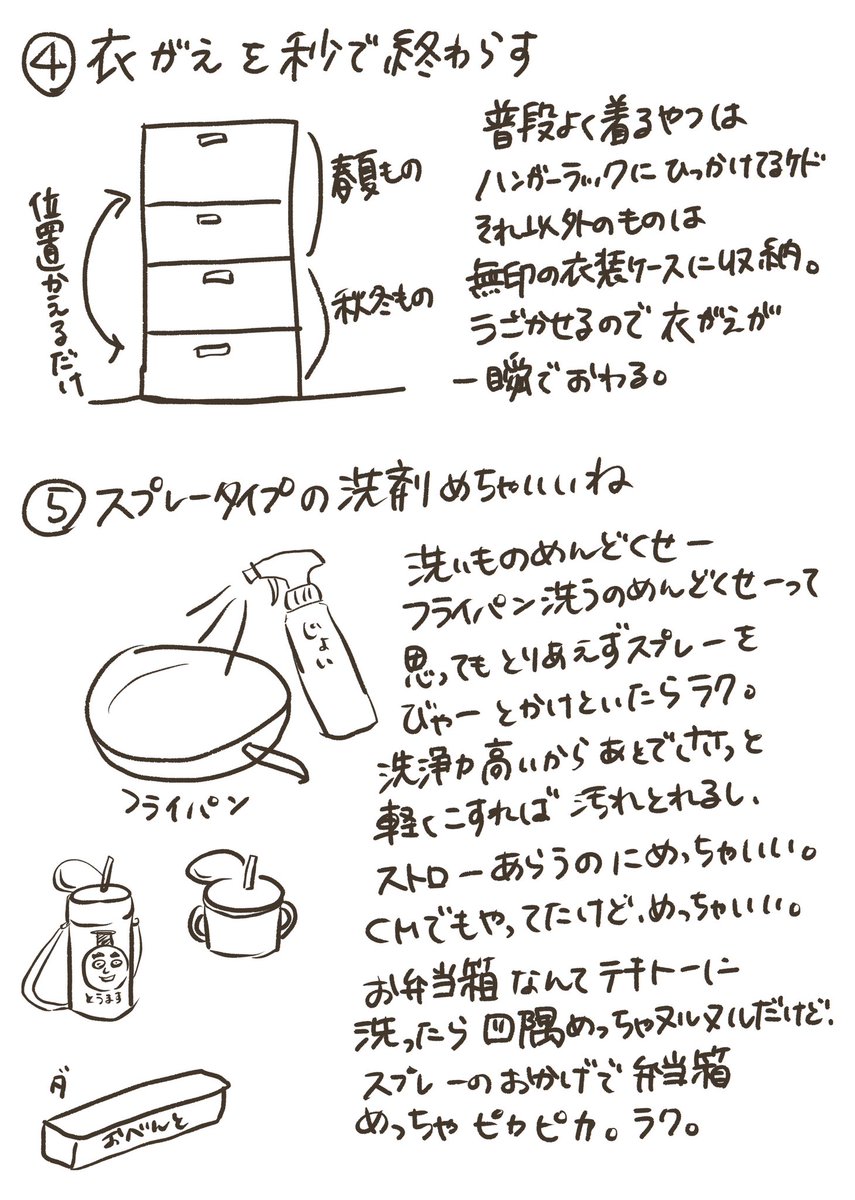 ④ 衣がえを秒で終わらす
普段よく着るやつは
ハンガーラックにひっかけてるケド
それ以外のものは
無印の衣装ケースに収納。
うごかせるので衣がえが
一瞬でおわる。
春夏もの
秋冬もの
位置かえるだけ
⑤ スプレータイプの洗剤めちゃいいね
洗いものめんどくせー
フライパン洗うのめんどくせーって
思ってもとりあえずスプレーを
びゃーとかけといたらラク。
洗浄力高いからあとでササっと
軽くこすれば汚れとれるし、
ストローあらうのにめっちゃいい。
CMでもやってたけど、めっちゃいい。
お弁当箱なんてテキトーに
洗ったら四隅めっちゃヌルヌルだけど、
スプレーのおかげで弁当箱
めっちゃピカピカ。ラク。
じょい
フライパン
とうます
おべんと